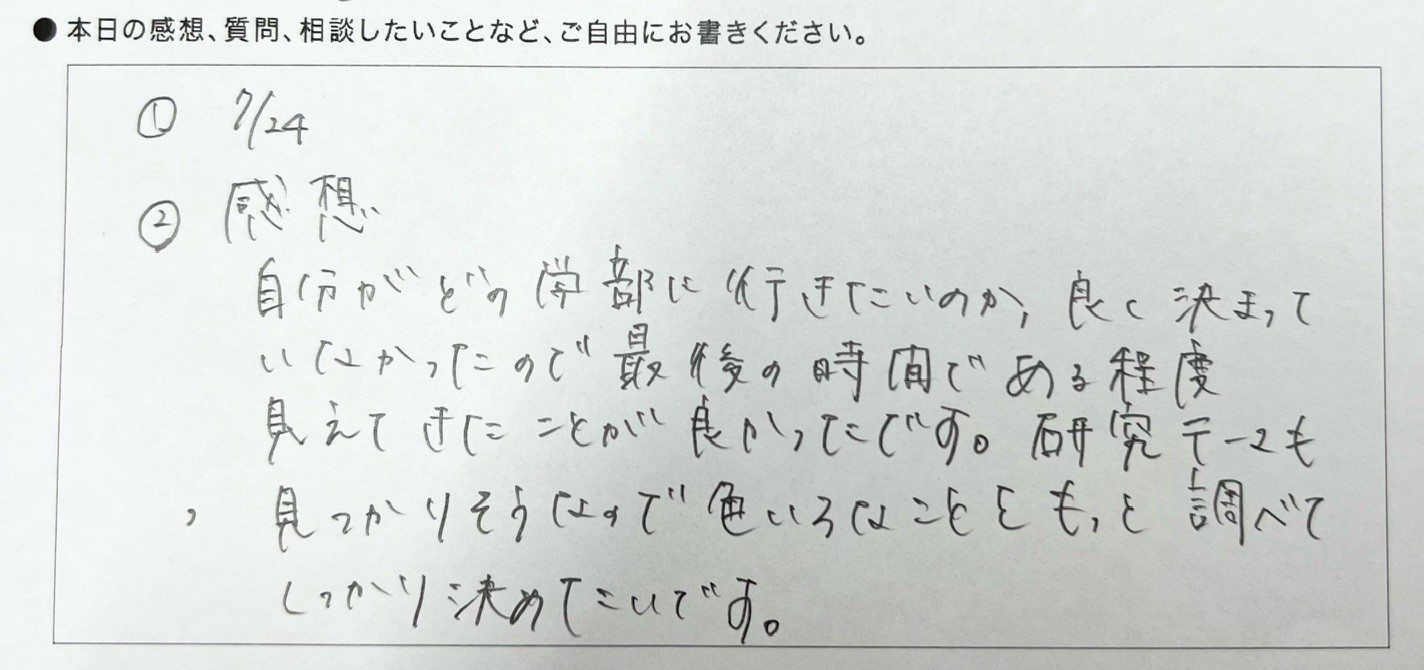 ●本日の感想、質問、相談したいことなど、ご自由にお書きください。
① 7/24
② 感想
自分がどの学部に行きたいのか、良く決まって
いなかったので最後の時間である程度
見えてきたことが良かったです。研究テーマも
見つかりそうなので色いろなことをもっと調べて
しっかり決めたいです。